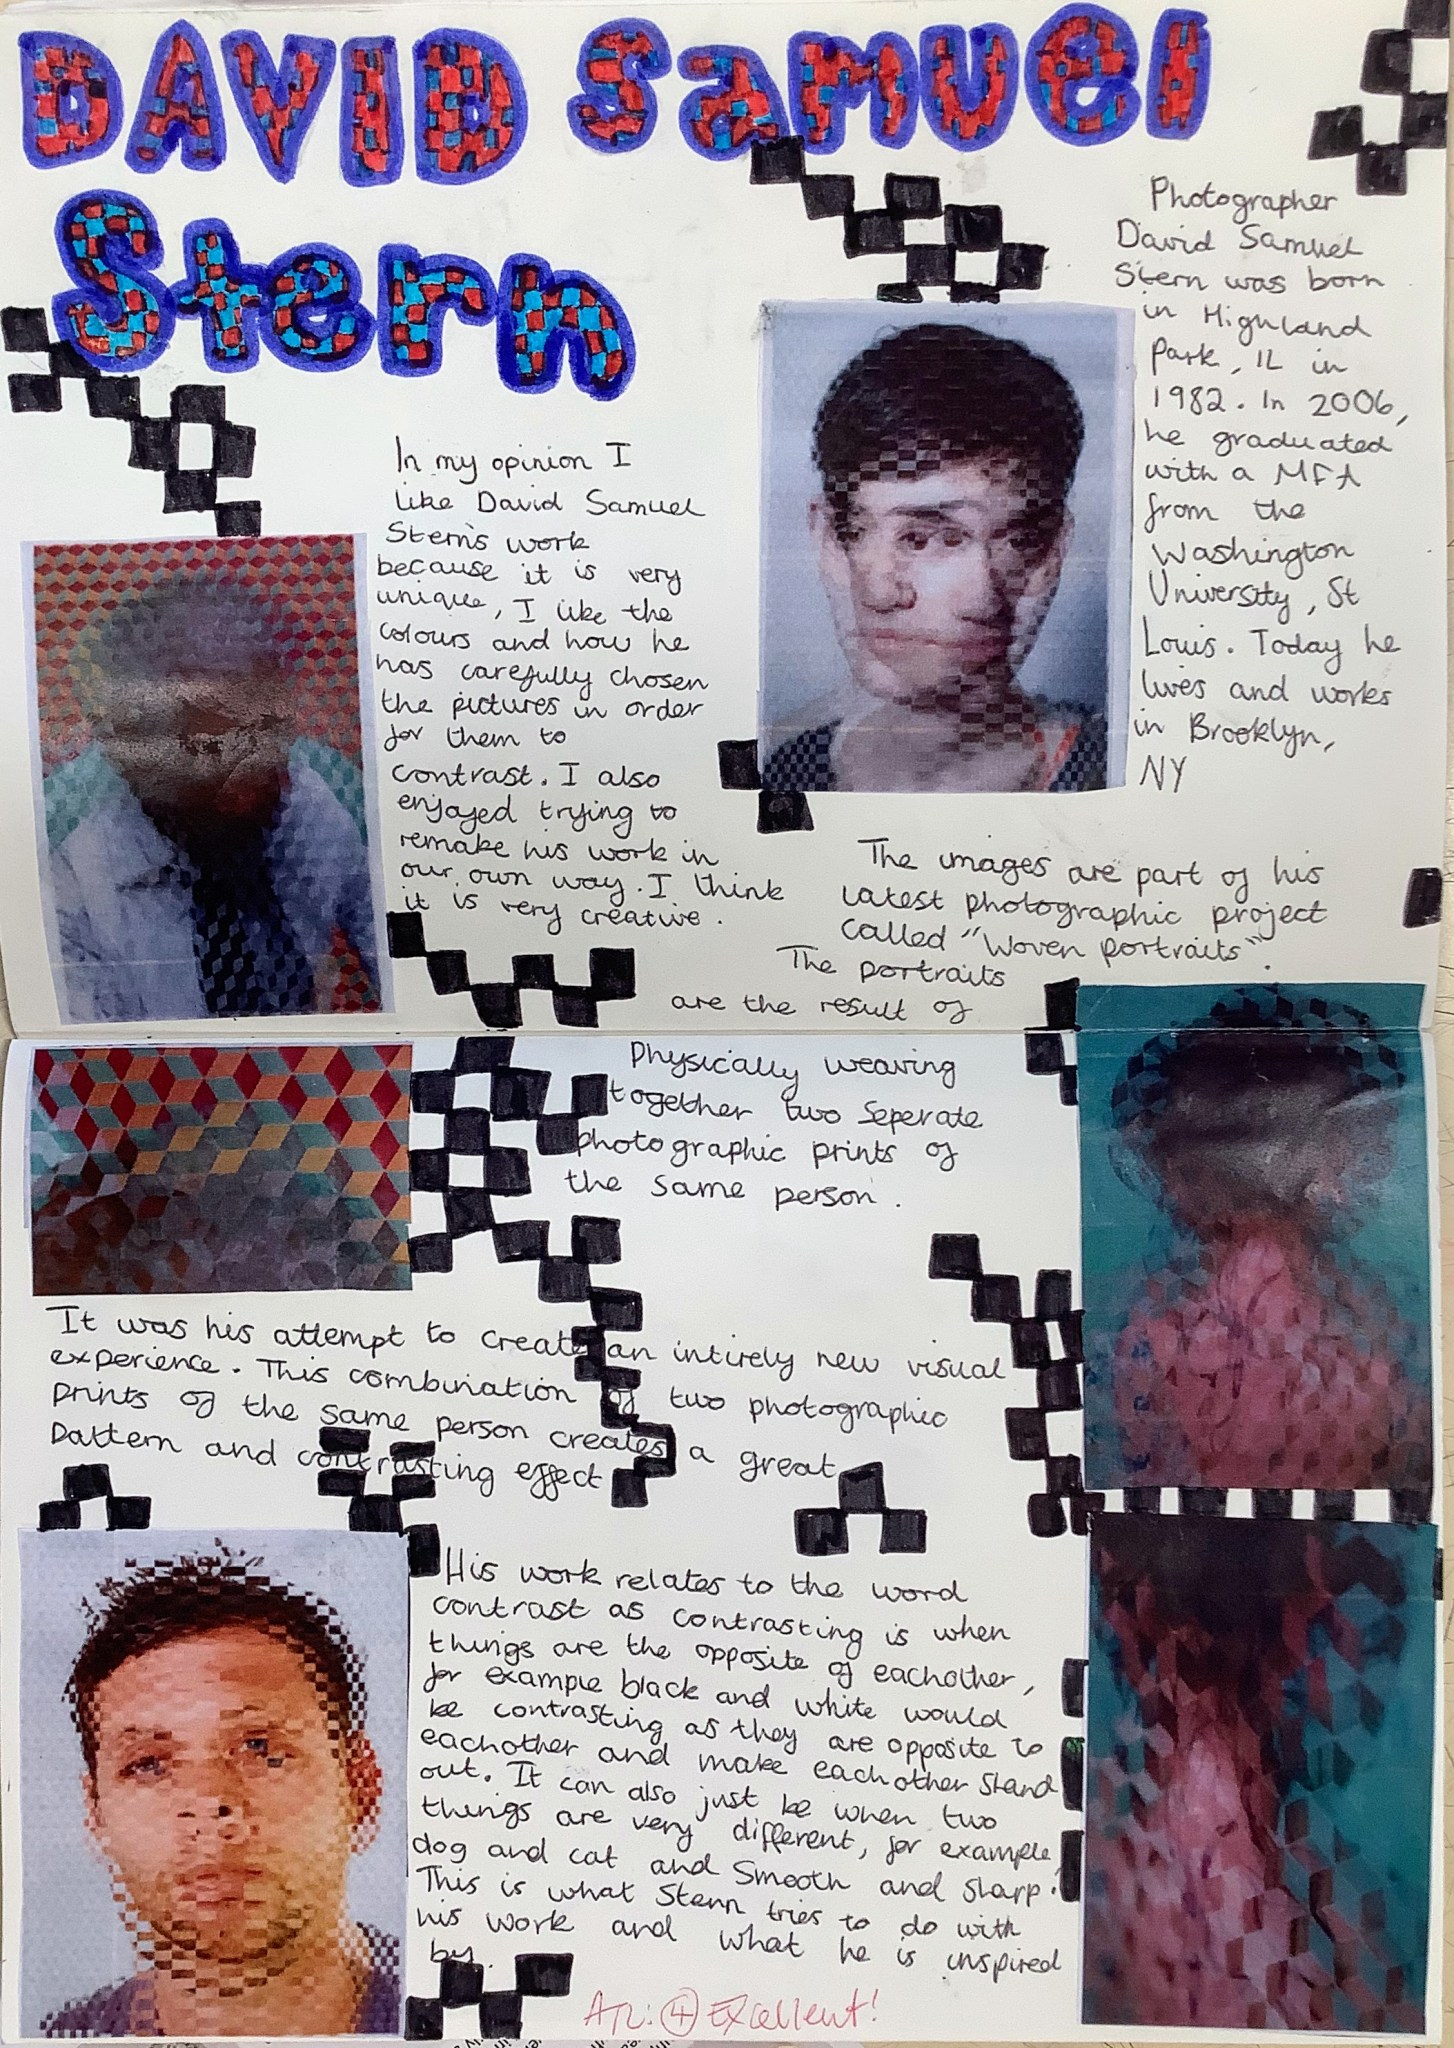 DAVID Samuel
Stern
Photographer
David Samuel
Stern was born
in Highland
Park, IL in
1982. In 2006,
he graduated
with a MFA
from the
Washington
University, St
Louis. Today he
lives and works
in Brooklyn,
NY
In my opinion I
like David Samuel
Sterns work
because it is very
unique, I like the
colours and how he
has carefully chosen
the pictures in order
for them to
contrast. I also
enjoyed trying to
remake his work in
our own way. I think
it is very creative.
The images are part of his
latest photographic project
called "Woven portraits".
The portraits
are the result of
Physically weaving
together two seperate
photographic prints of
the same person.
It was his attempt to create an intirely new visual
experience. This combination of two photographic
prints of the same person creates a great
Pattern and contrasting effect
His work relates to the word
contrast as contrasting is when
things are the opposite of eachother,
for example black and white would
be contrasting as they are opposite to
eachother and make eachother stand
out. It can also just be when two
things are very different, for example
dog and cat and smooth and sharp.
This is what Stern tries to do with
his work and what he is inspired
by.
ATL: 4 Excellent!